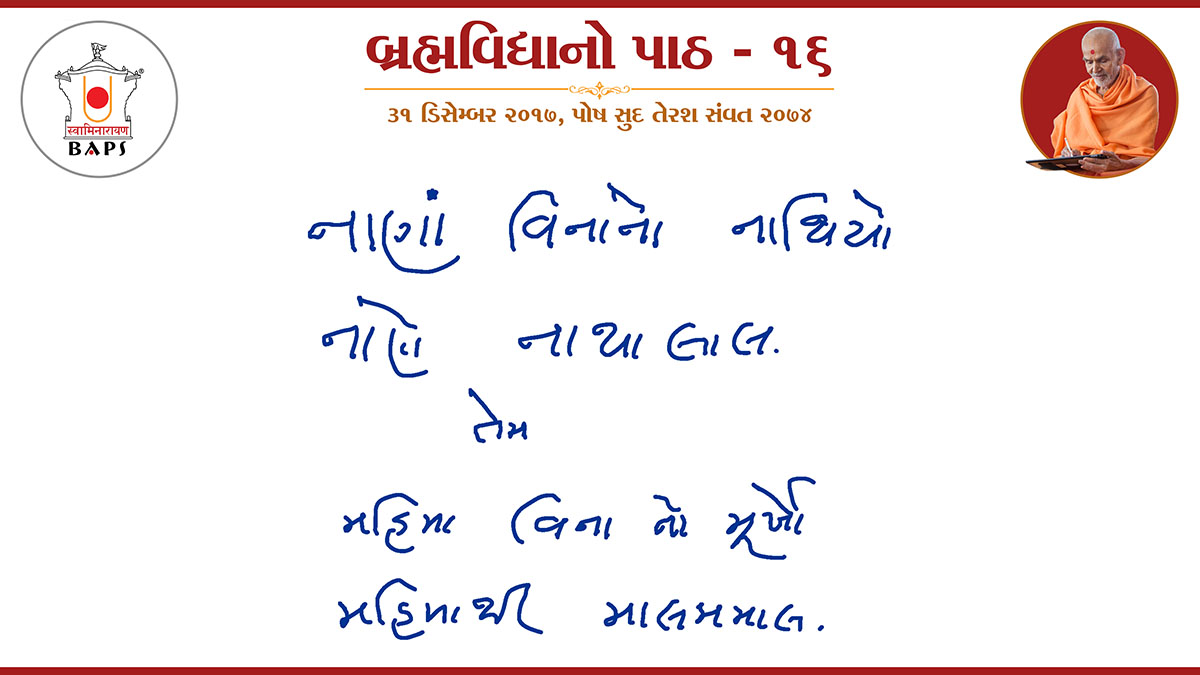 બ્રહ્મવિદ્યાનો પાઠ - ૧૬
૩૧ ડિસેમ્બર ૨૦૧૭, પોષ સુદ તેરશ સંવત ૨૦૭૪
स्वामिनारायण
®
BAPS
નાણાં વિનાનો નાથિયો
નાણે નાથાલાલ.
તેમ
મહિમા વિના નો મૂર્ખો
મહિમાથી માલમમાલ.